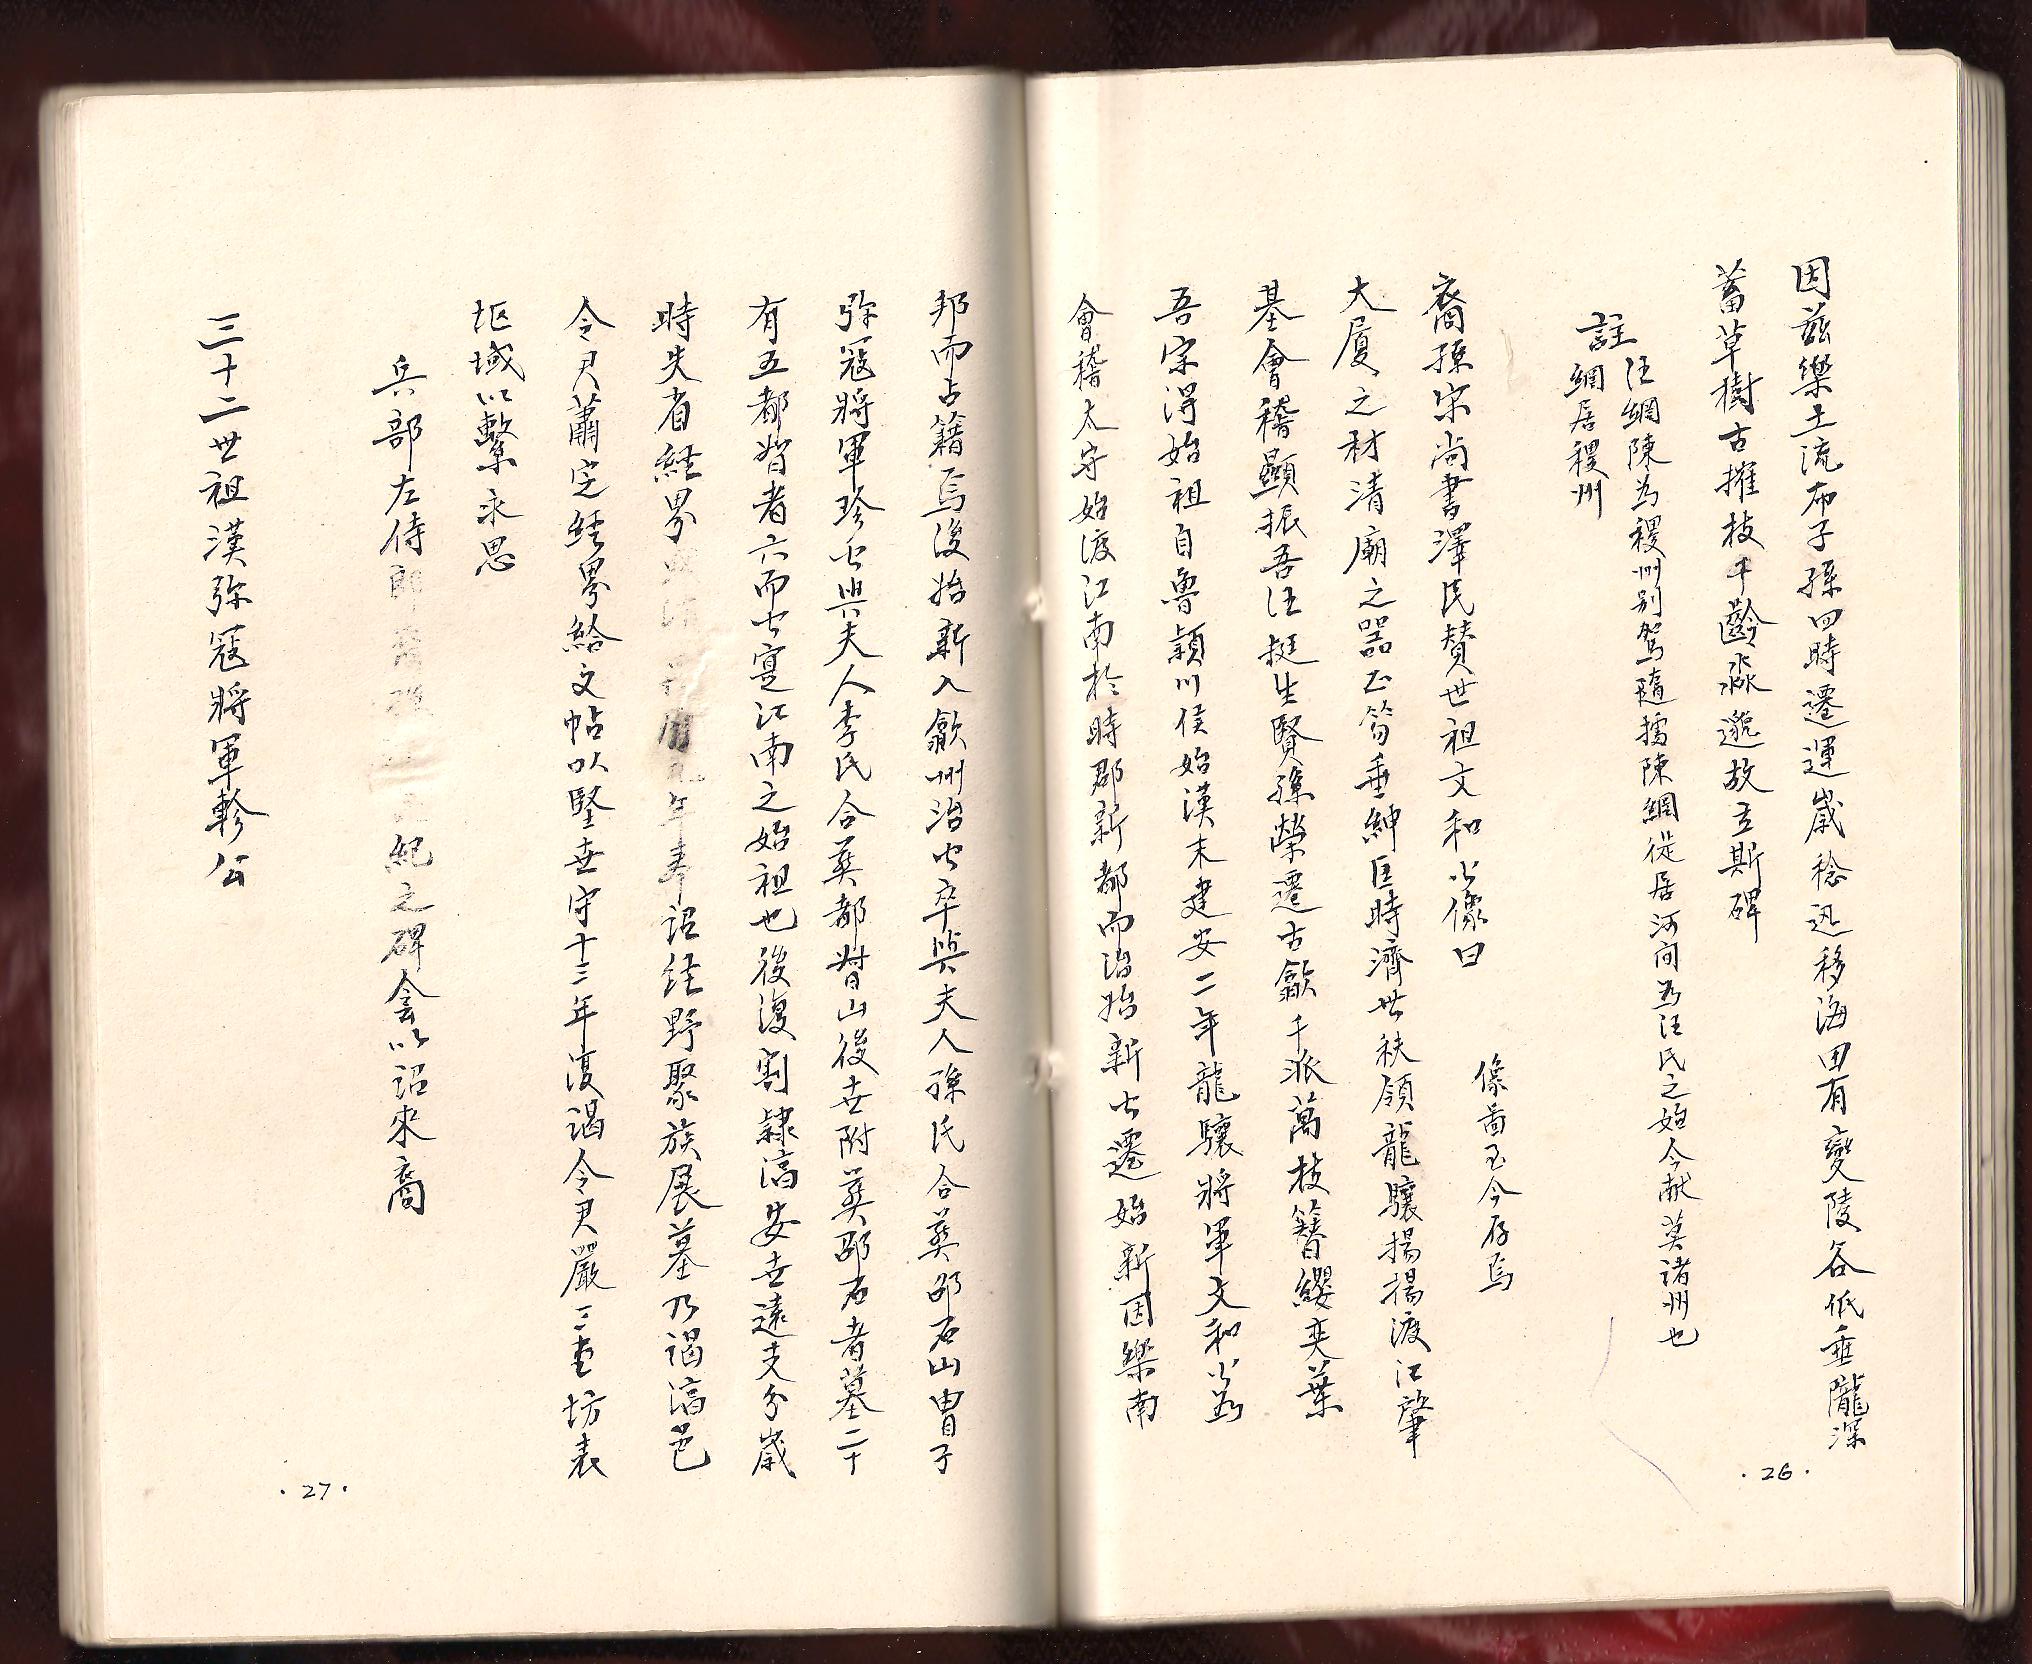 因茲樂土流布子孫四時遷運歲稔迅移海田有變陵谷低垂隴深
蓄草樹古摧枝千齡淼邈故立斯碑
註 汪綢陳為稷州別駕隨擕陳綢從居河間為汪氏之始今献莫諸州也
綢居稷州
像啚至今存焉
裔孫宋尚書澤民賛世祖文和公像曰
大厦之材清廟之器正笏垂紳匡時濟世秩領龍驤揚揚渡江肇
基會稽顯振吾汪挺生賢孫榮遷古歙千派萬枝簪纓奕葉
吾宗淂始祖自魯潁川侯始漢末建安二年龍驤將軍文和公為
會稽太守始渡江南於時郡新都而治始新公遷始新因樂南
·26·
邦而占籍焉後始新入歙州治公卒與夫人孫氏合葬邵石山曽子
弥寇將軍軫公與夫人李氏合葬都督山後世附葬邵石者墓二十
有五都督者六而公寔江南之始祖也後復割隷淳安世遠支分歲
時失省経界年奉詔経野聚族展墓乃谒淳邑
令尹蕭定経界給文帖以堅世守十三年復谒令尹嚴三吾坊表
坵域以繫永思
兵部左侍郎紀之碑隂以詔來裔
三十二世祖漢弥寇將軍軫公
·27·